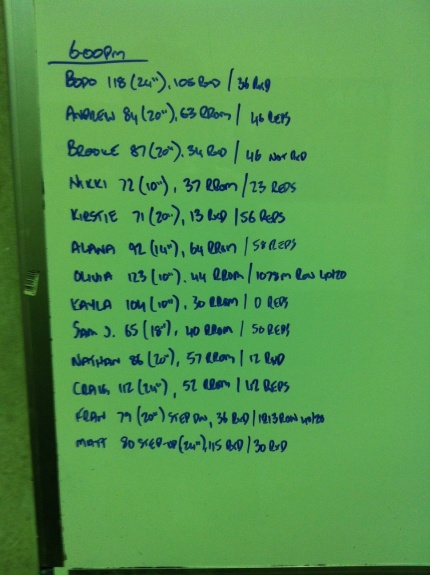 6:00pm
BODO 118 (24"), 105 RXD / 36 RXD
ANDREW 84 (20"), 63 RROM / 46 REPS
BROOKE 87 (20"), 34 RXD / 46 NOT RXD
NIKKI 72 (10"), 37 RROM / 23 REPS
KIRSTIE 71 (20"), 13 RXD / 56 REPS
ALANA 92 (14"), 64 RROM / 58 REPS
OLIVIA 123 (10"), 44 RROM / 1078M ROW 40/20
KAYLA 104 (10"), 30 RROM / 0 REPS
SAM J. 65 (18"), 40 RROM / 50 REPS
NATHAN 86 (20"), 57 RROM / 12 RXD
CRAIG 112 (24"), 52 RROM / 42 REPS
FRAN 79 (20") STEP DN, 36 RXD / 1213 ROW 40/20
MATT 80 STEP-UP (24"), 115 RXD / 30 RXD